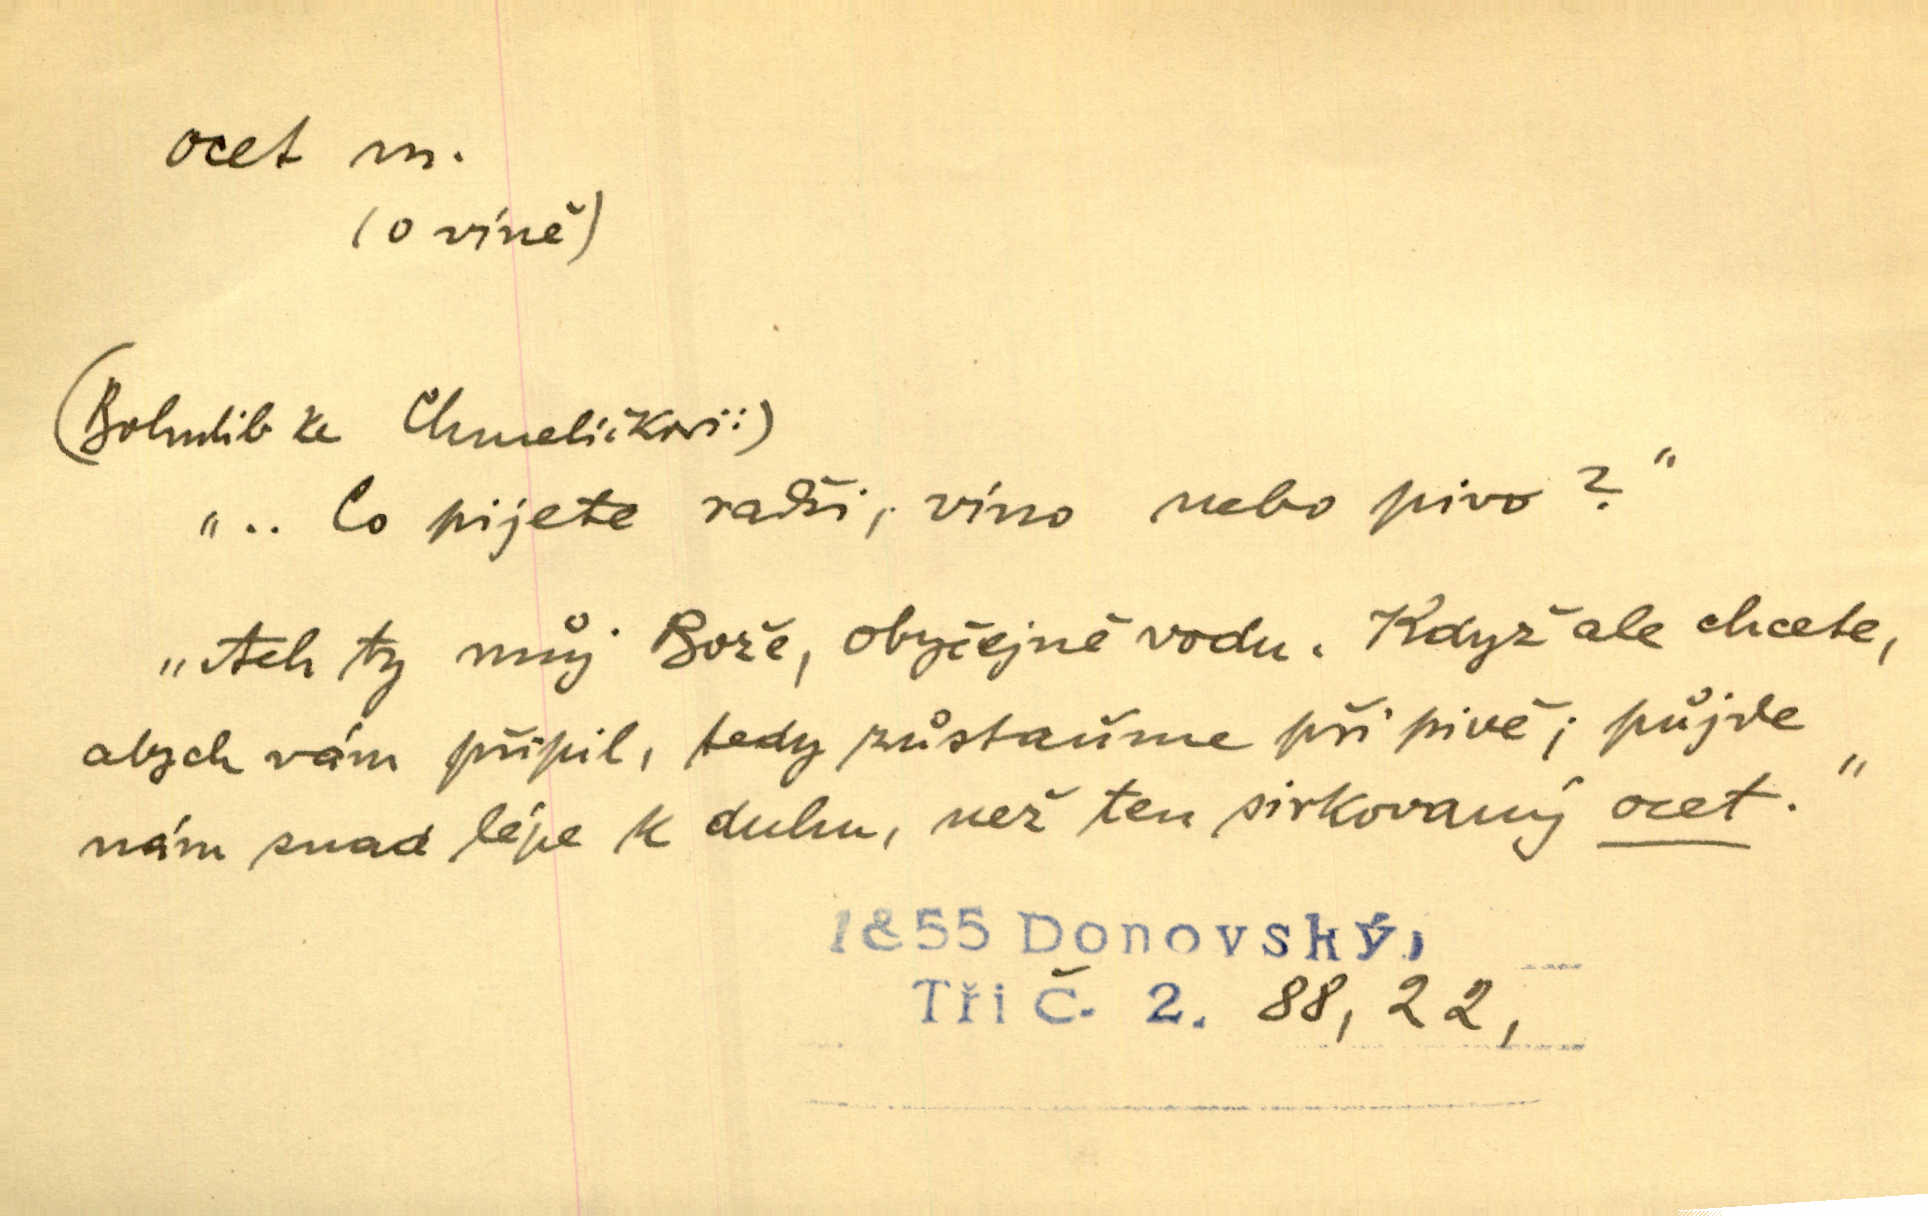 ocet m.
(o víně)
(Bohulib ke Chmelíčkovi:)
„.. Co pijete radši, víno nebo pivo?“
„Ach ty můj Bože, obyčejně vodu. Když ale chcete,
abych vám připil, tedy zůstaňme při pivě; půjde
nám snad lépe k duhu, než ten sirkovaný ocet.“
1855 Donovský,
Tři Č. 2. 88, 22,